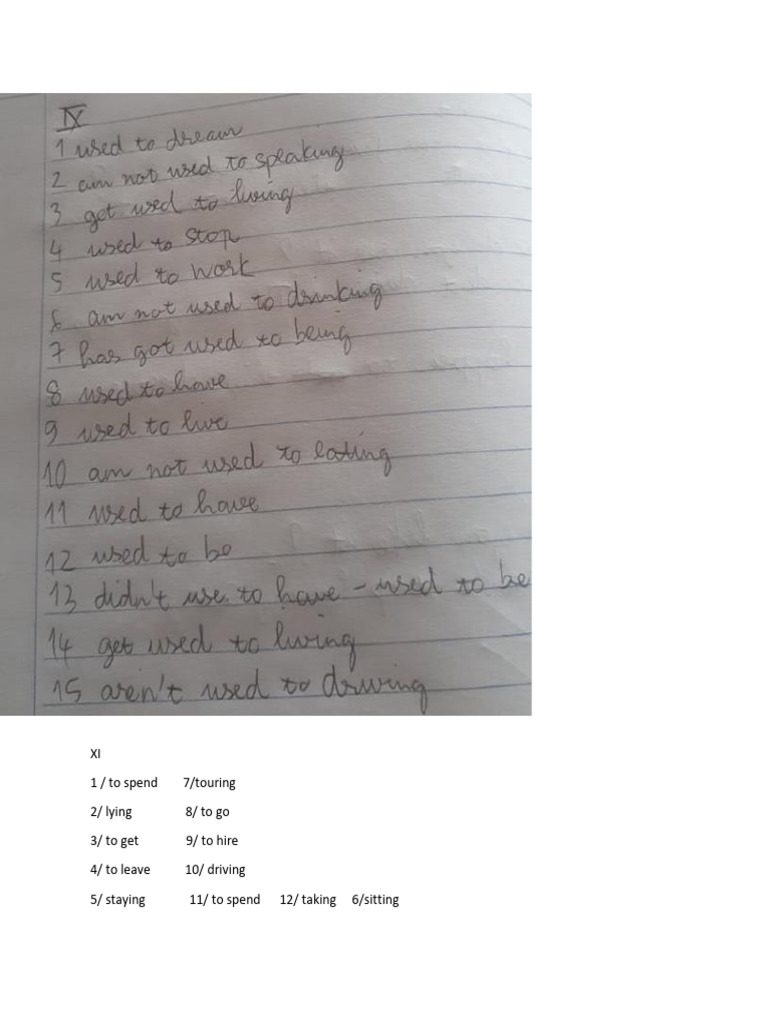 IX
1 used to dream
2 am not used to speaking
3 get used to living
4 used to stop
5 used to work
6 am not used to drinking
7 has got used to being
8 used to have
9 used to live
10 am not used to eating
11 used to have
12 used to be
13 didn't use to have - used to be
14 get used to living
15 aren't used to driving
XI
1 / to spend 7/touring
2/ lying 8/ to go
3/ to get 9/ to hire
4/ to leave 10/ driving
5/ staying 11/ to spend 12/ taking 6/sitting